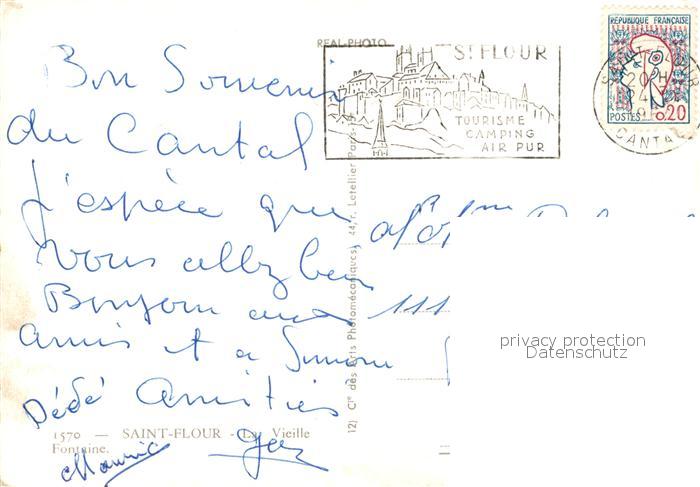 REAL-PHOTO
Sᵗ FLOUR
TOURISME
CAMPING
AIR PUR
RÉPUBLIQUE FRANÇAISE
POSTES 0,20
20 H
CANTAL
Bon Souvenir
du Cantal
J'espère que
vous allez bien
Bonjour aux
amis et a Simone
Dédé Amitiés
Maurice
111
12) Cie des Arts Photomécaniques, 44, r. Letellier Paris-
1570 — SAINT-FLOUR - La Vieille
Fontaine.
privacy protection
Datenschutz